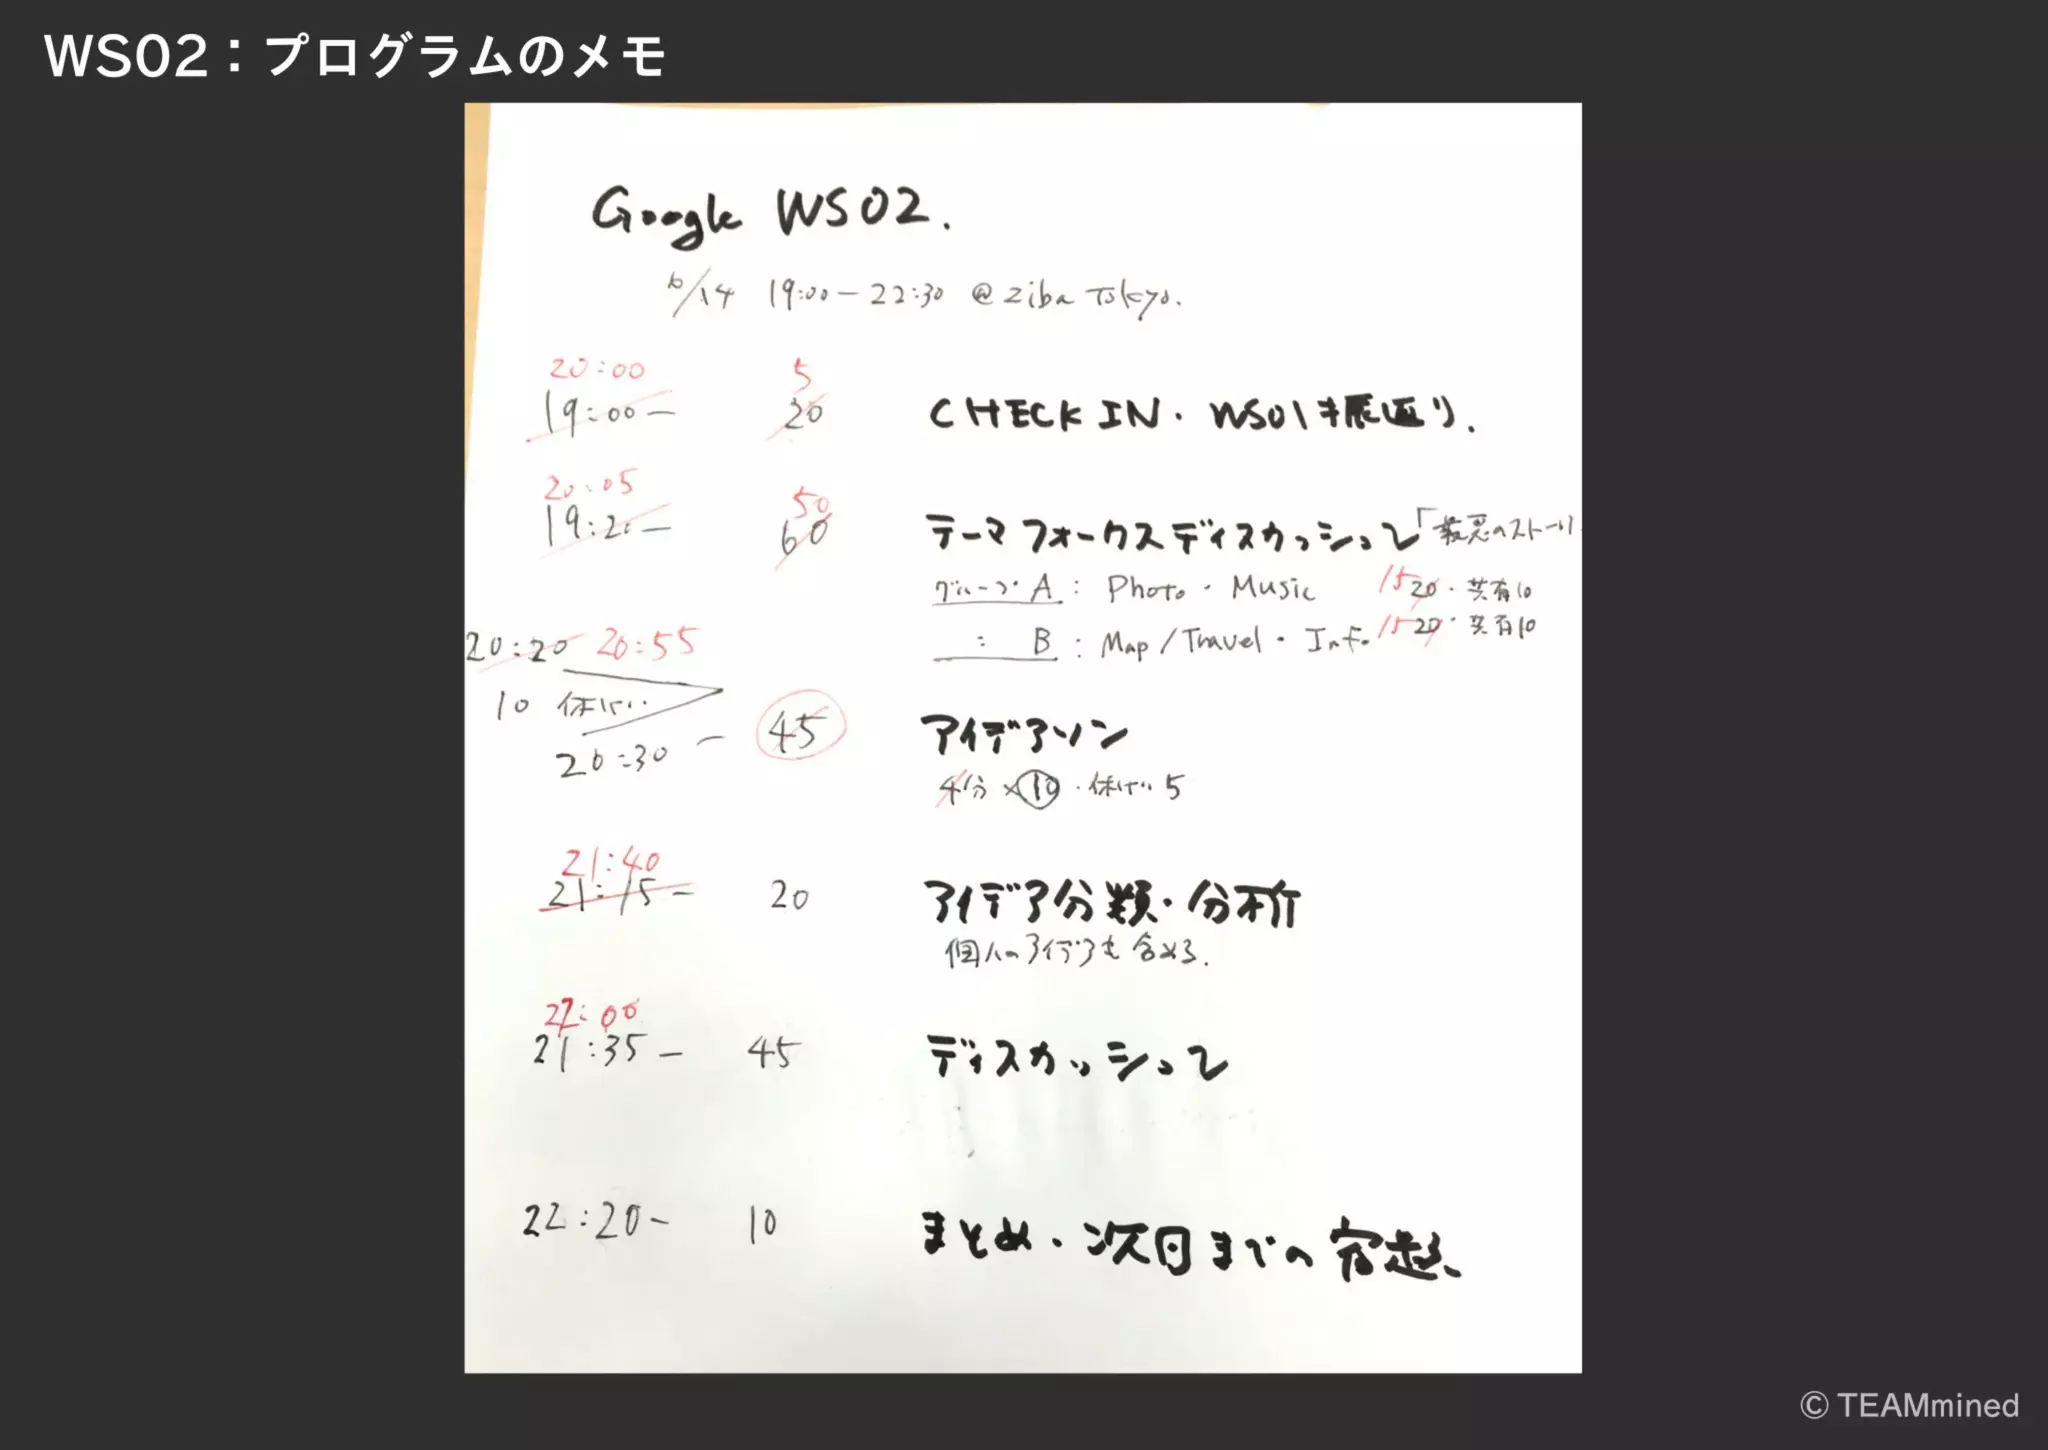 WS02：プログラムのメモ
Google WS02.
/14 19:00ー22:30 @ziba Tokyo.
20:00 5
19:00ー 20 CHECK IN・WS01振返り.
20:05 50
19:20ー 60 テーマフォーカスディスカッション「最悪のストーリ
グループA：Photo・Music 15 20・共有10
： B：Map/Travel・Info 15 20・共有10
20:20 20:55
10 休けい
20:30ー 45 アイデアソン
4分×10・休けい5
21:40
21:15ー 20 アイデア分類・分析
個人のアイデアも含める.
22:00
21:35ー 45 ディスカッション
22:20ー 10 まとめ・次回までの宿題、
© TEAMmined